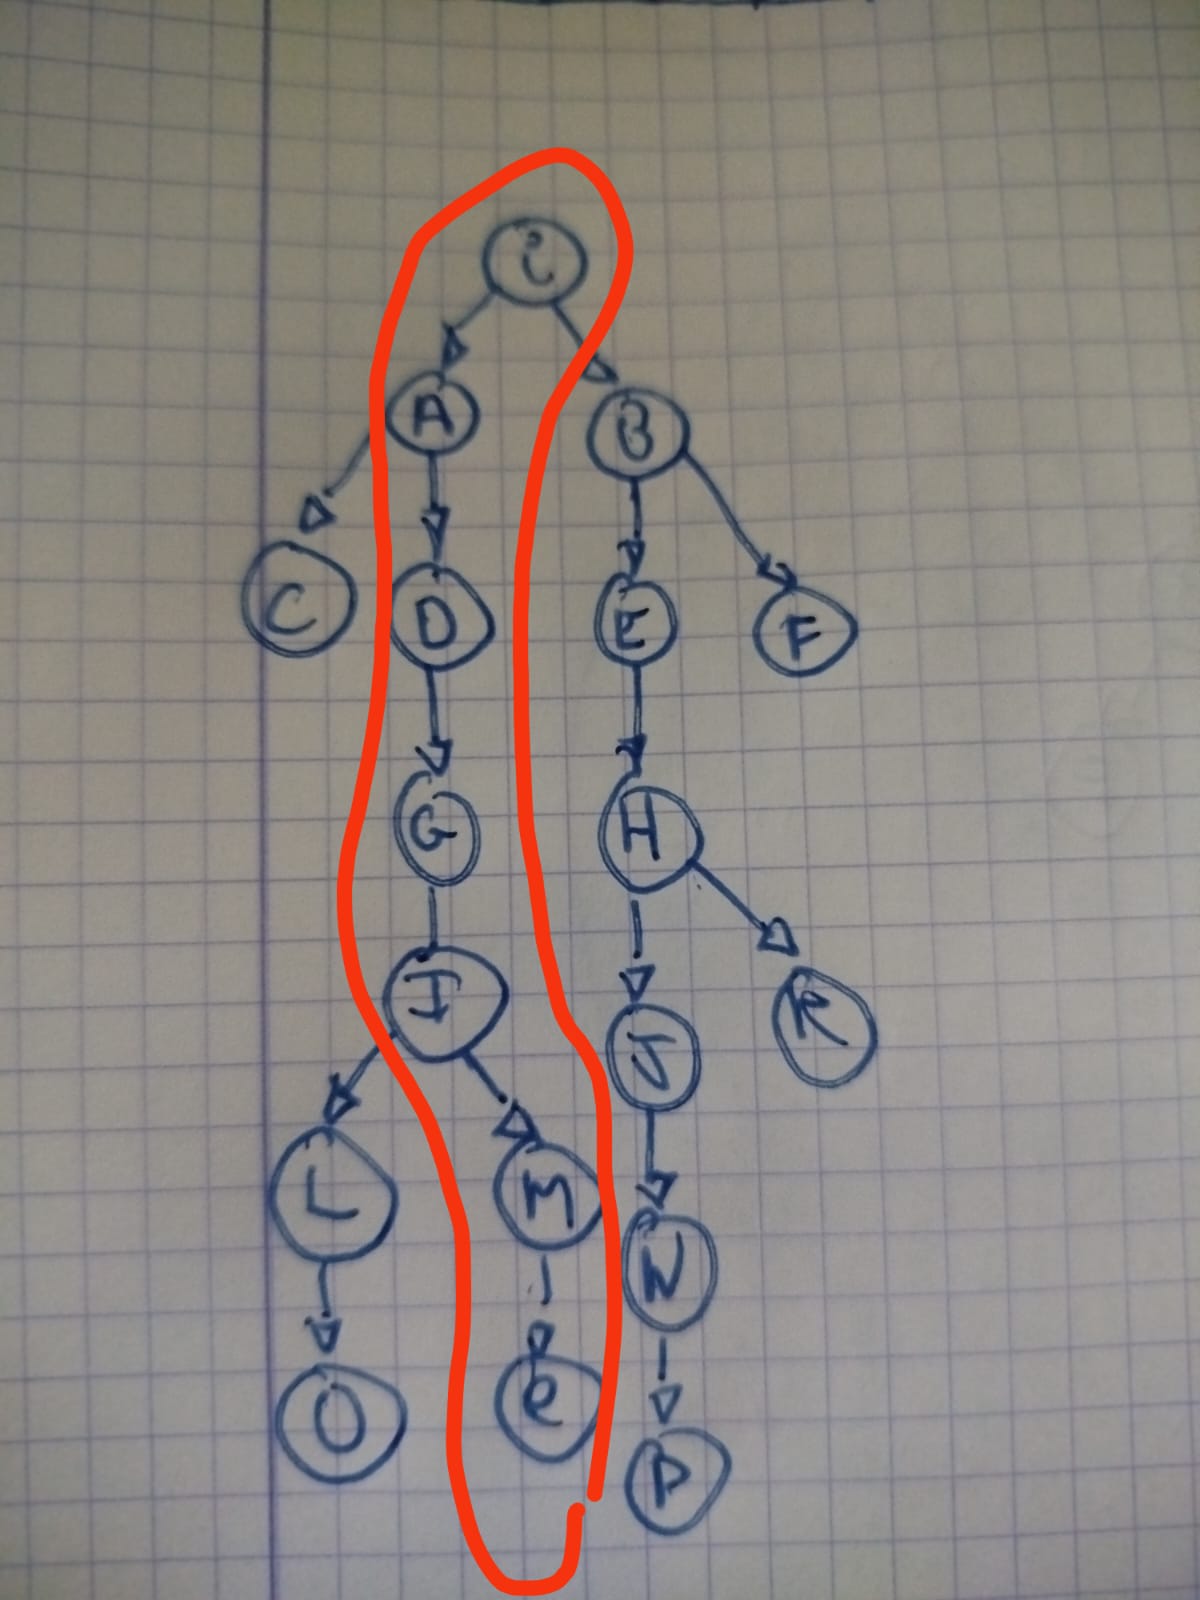 i
A
B
C
D
E
F
G
H
I
K
J
L
M
N
O
e
P